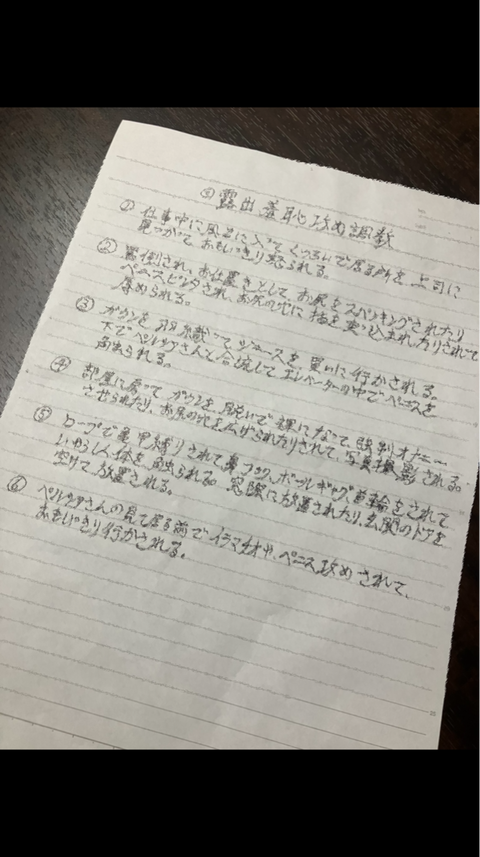 ⑤露出羞恥攻め調教
① 仕事中に風呂に入ってくつろいで居る所を上司に
見つかっておもいっきり怒られる。
② 罵倒され、お仕置きとして お尻をスパンキングされたり
ペニスビンタされ、お尻の穴に指を突っ込まれたりされて
辱められる。
③ ガウンを羽織ってジュースを買いに行かされる。
下でペルシアさんと合流してエレベーターの中でペニスを
露出られる。
④ 部屋に戻ってガウンを脱いで裸になって強制オナニー
させられたり、お尻の穴を広げられたりされて、写真撮影される。
⑤ ロープで亀甲縛りされて鼻フック、ボールギャグ、首輪をされて
いやらしい体を露出られる。窓際に放置されたり、玄関のドアを
空けて放置される。
⑥ ペルシアさんの見て居る前でイラマチオや、ペニス攻めされて、
おもいっきり行かされる。